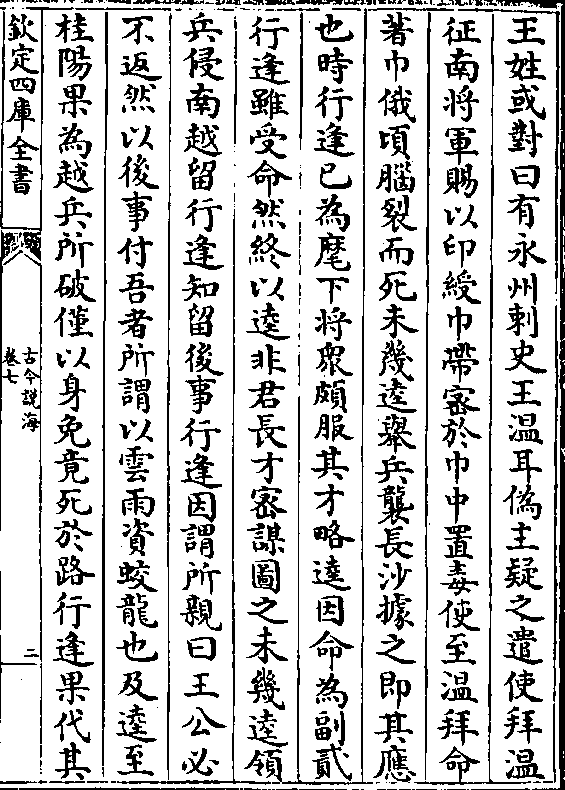 王姓或對曰有永州刺史王溫耳偽主疑之遣使拜溫
征南將軍賜以印綬巾帶密於巾中置毒使至溫拜命
著巾俄頃腦裂而死未幾逵舉兵襲長沙據之即其應
也時行逢已為麾下將衆頗服其才略逵因命為副貳
行逢雖受命然終以逵非君長才密謀圖之未幾逵領
兵侵南越留行逢知留後事行逢因謂所親曰王公必
不返然以後事付吾者所謂以雲雨資蛟龍也及逵至
桂陽果為越兵所破僅以身免竟死於路行逢果代其
欽定四庫全書
古今說海
卷七
二